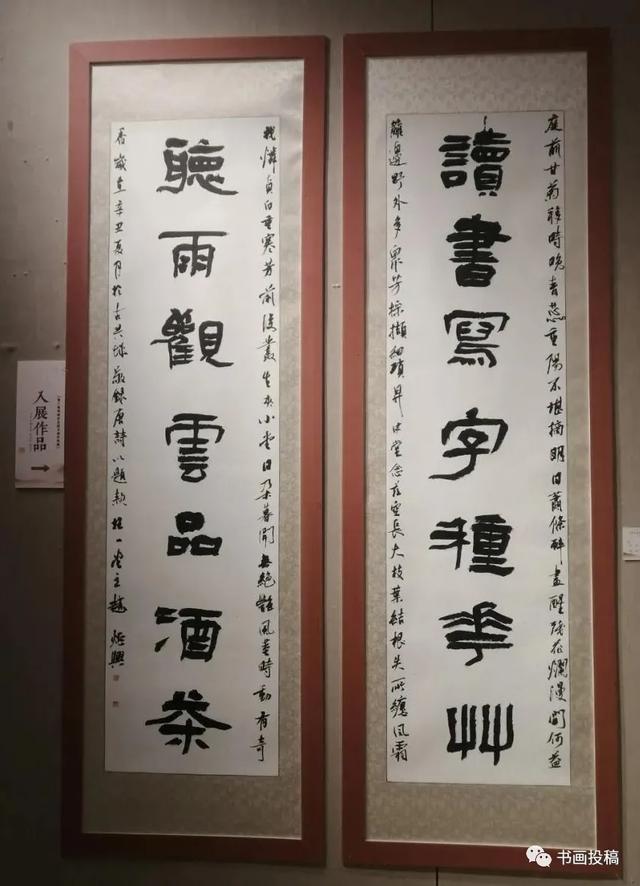 庭前甘菊移時晚青蕊重陽不堪摘明日蕭條醉盡醒殘花爛漫開何益
讀書寫字種華艸
籬邊野外多眾芳採擷細瑣昇中堂念茲空長大枝葉結根失所纏風霜
我憐貞白重寒芳前後叢生夾小堂月朵暮開無絕艷風莖時動有奇
聽雨觀雲品酒茶
香歲在辛丑夏月於古共城敬錄唐詩以題款
入展作品
书画投稿